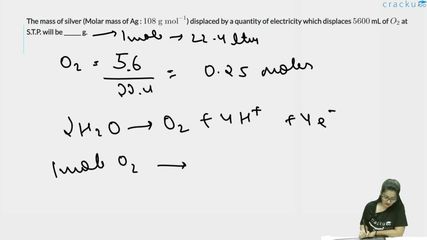 cracku
The mass of silver (Molar mass of Ag : 108 g mol⁻¹) displaced by a quantity of electricity which displaces 5600 mL of O₂ at
S.T.P. will be_____ g. → 1 mole → 22.4 ltrs
O₂ = 5.6 / 22.4 = 0.25 moles
2H₂O → O₂ + 4H⁺ + 4e⁻
1 mole O₂ →